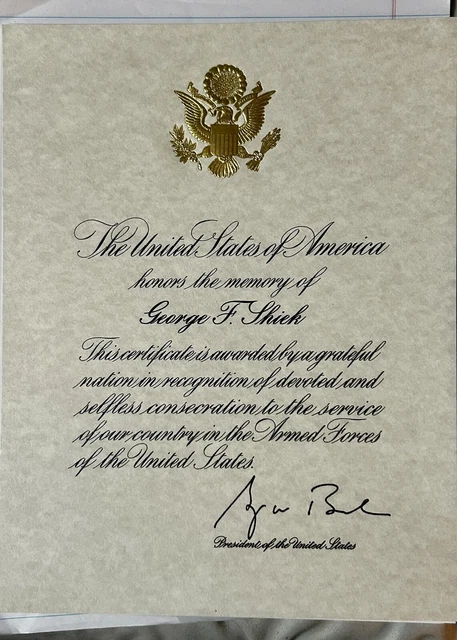 The United States of America
honors the memory of
George F. Shiek
This certificate is awarded by a grateful
nation in recognition of devoted and
selfless consecration to the service
of our country in the Armed Forces
of the United States.
President of the United States